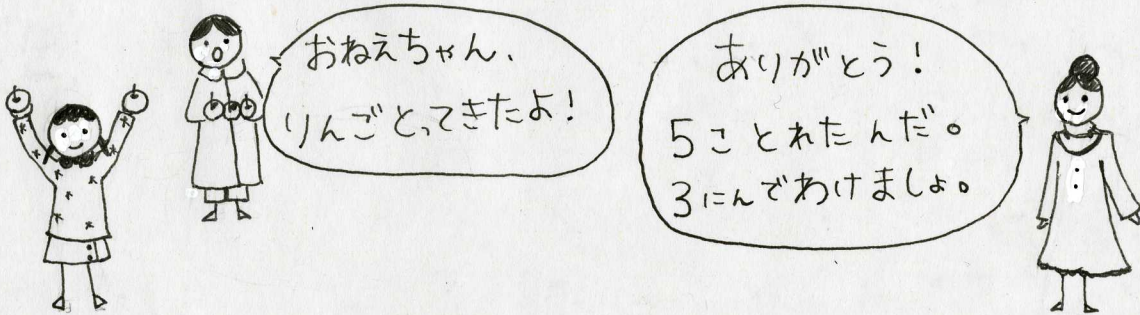 おねえちゃん、
りんごとってきたよ!
ありがとう!
5こ とれたんだ。
3にんでわけましょ。